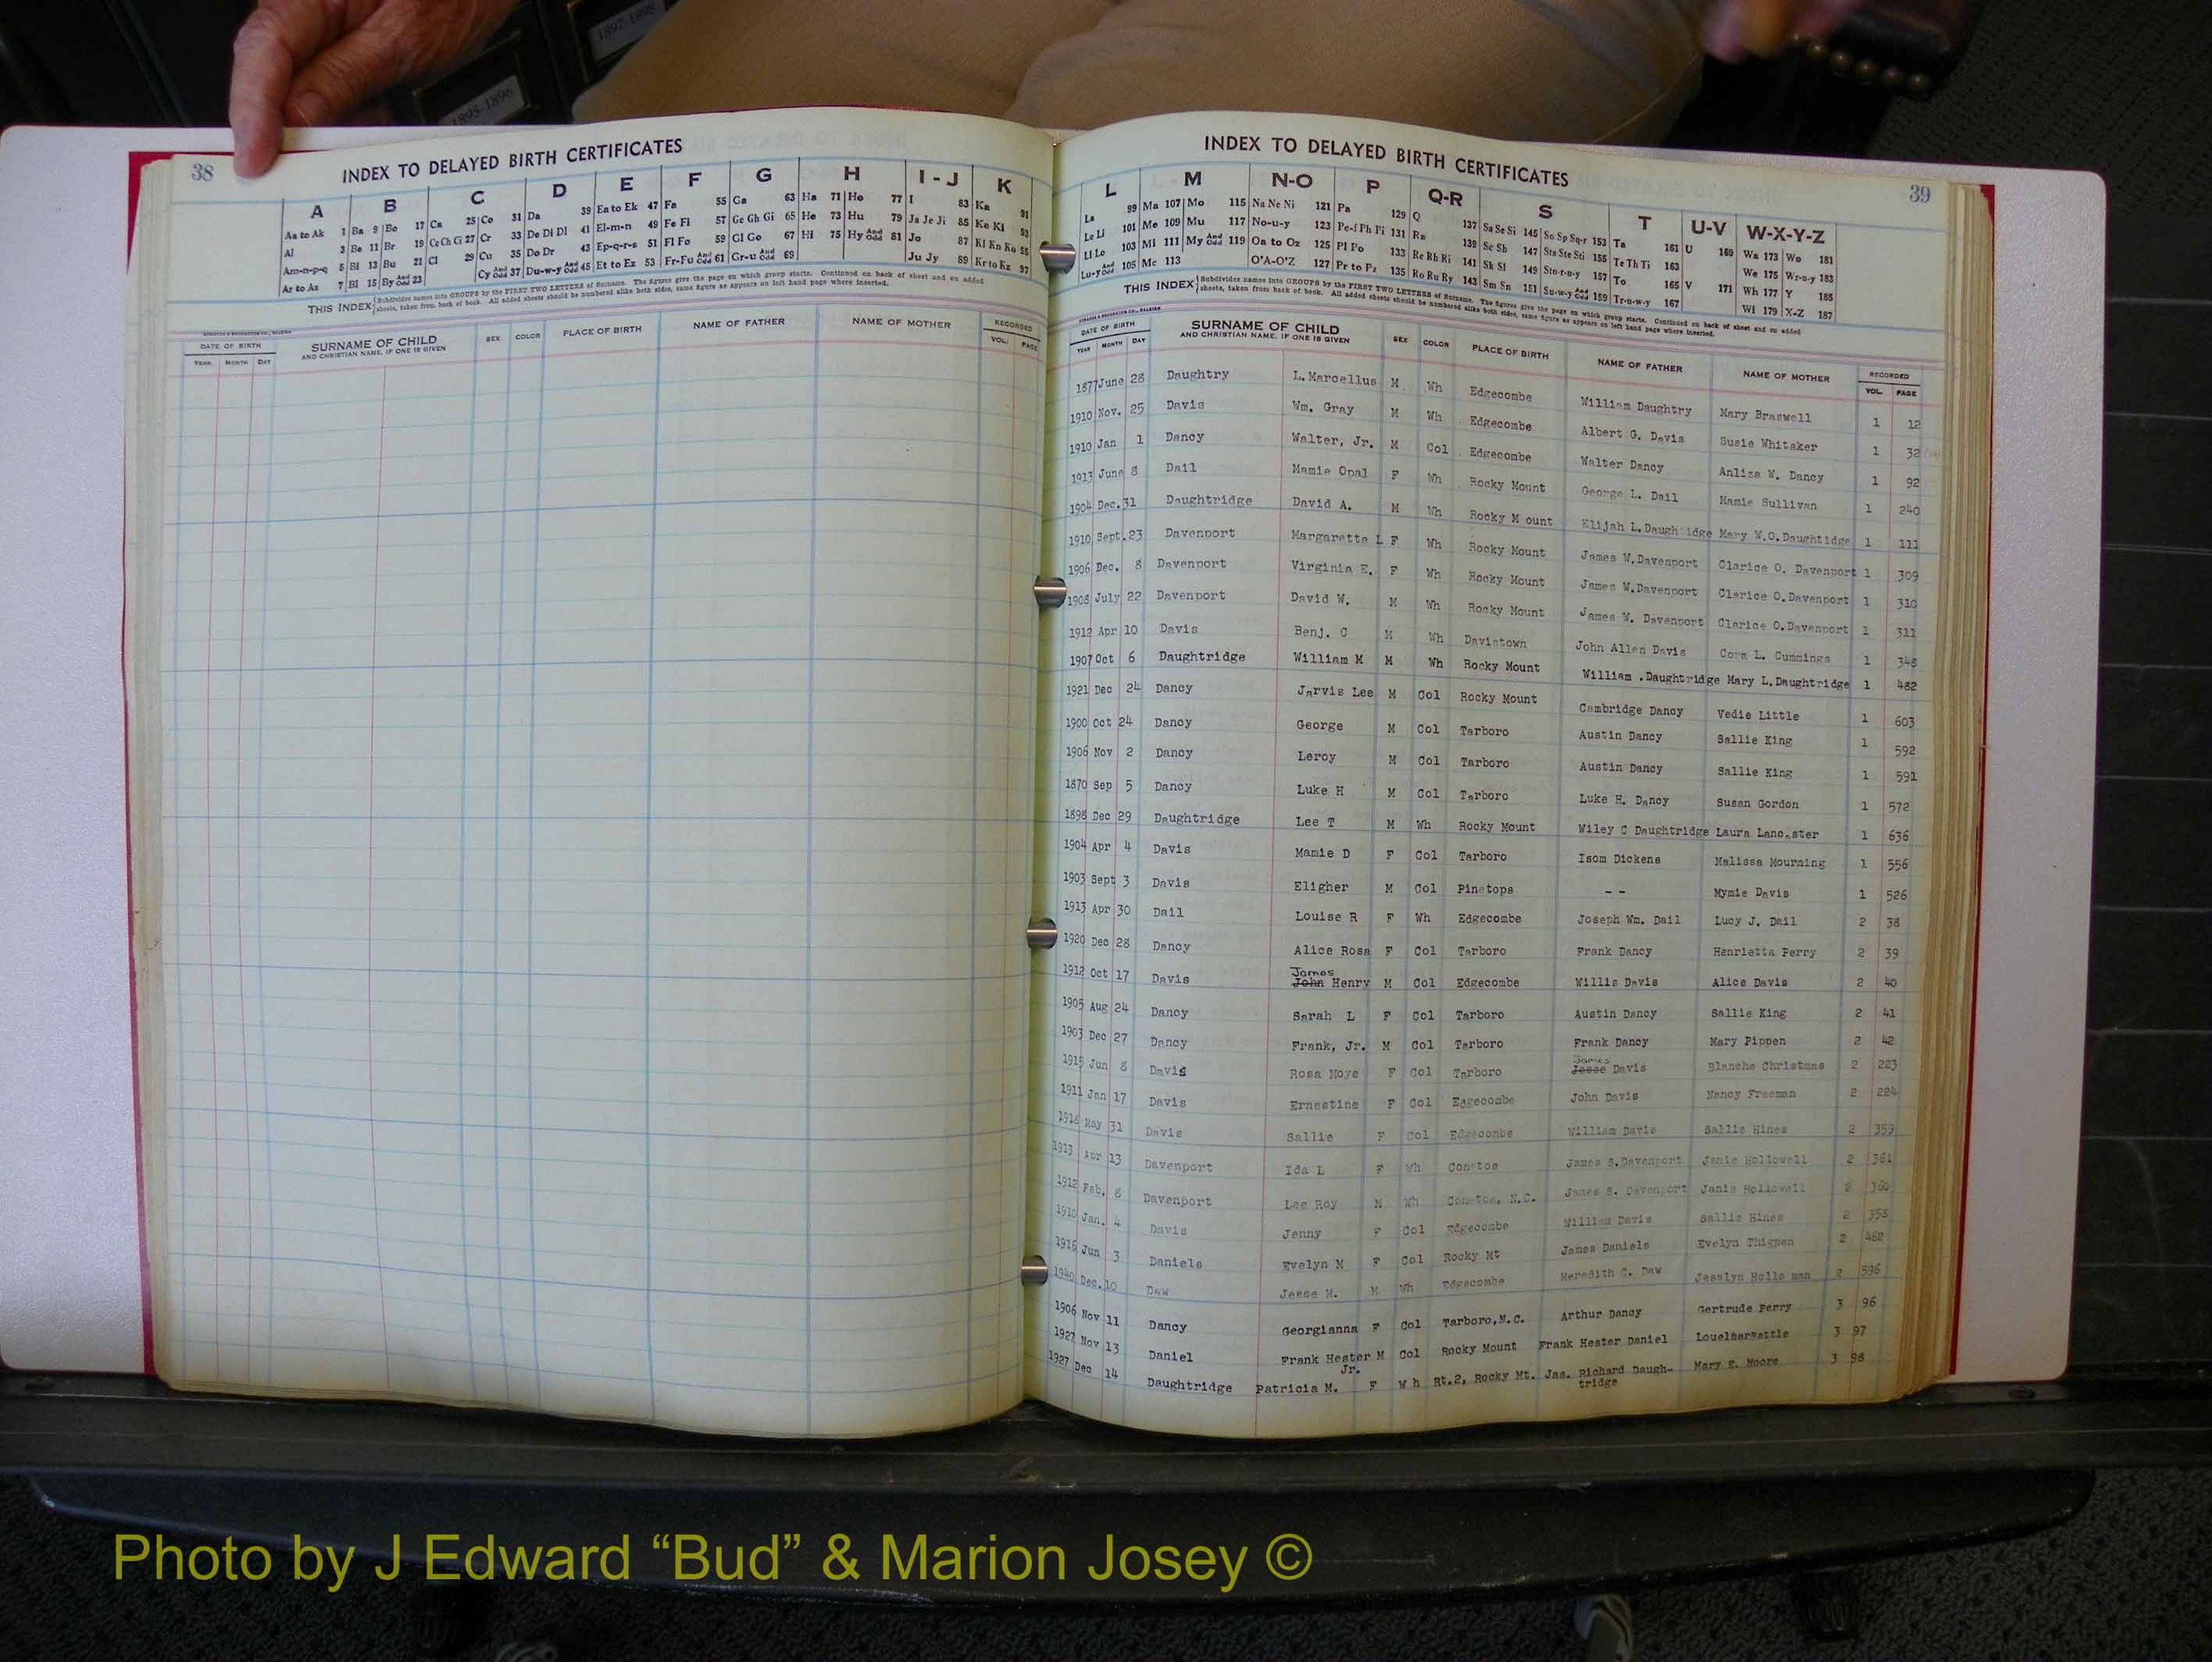 1897-1898
1895-1896
38
INDEX TO DELAYED BIRTH CERTIFICATES
A B C D E F G H I - J K
Aa to Ak 1 Ba 9 Bo 17 Ca 25 Co 31 Da 39 Ea to Ek 47 Fa 55 Ga 63 Ha 71 Ho 77 I 83 Ka 91
Al 3 Be 11 Br 19 Ce Ch Ci 27 Cr 33 De Di Dl 41 El-m-n 49 Fe Fi 57 Ge Gh Gi 65 He 73 Hu 79 Ja Je Ji 85 Ke Ki 93
Am-n-p-q 5 Bi 13 Bu 21 Cl 29 Cu 35 Do Dr 43 Ep-q-r-s 51 Fl Fo 59 Gl Go 67 Hi 75 Hy And Odd 81 Jo 87 Kl Kn Ko 95
Ar to Az 7 Bl 15 By And Odd 23 Cy And Odd 37 Du-w-y And Odd 45 Et to Ez 53 Fr-Fu And Odd 61 Gr-u And Odd 69 Ju Jy 89 Kr to Kz 97
THIS INDEX Subdivides names into GROUPS by the FIRST TWO LETTERS of Surname. The figures give the page on which group starts. Continued on back of sheet and on added
sheets, taken from back of book. All added sheets should be numbered alike both sides, same figure as appears on left hand page where inserted.
DATE OF BIRTH SURNAME OF CHILD SEX COLOR PLACE OF BIRTH NAME OF FATHER NAME OF MOTHER RECORDED
YEAR MONTH DAY AND CHRISTIAN NAME, IF ONE IS GIVEN VOL. PAGE
INDEX TO DELAYED BIRTH CERTIFICATES
39
L M N-O P Q-R S T U-V W-X-Y-Z
La 99 Ma 107 Mo 115 Na Ne Ni 121 Pa 129 Q 137 Sa Se Si 145 So Sp Sq-r 153 Ta 161 U 169 Wa 173 Wo 181
Le Li 101 Me 109 Mu 117 No-u-y 123 Pe-f Ph Pi 131 Ra 139 Sc Sh 147 Sta Ste Sti 155 Te Th Ti 163 We 175 Wr-u-y 183
Ll Lo 103 Mi 111 My And Odd 119 Oa to Oz 125 Pl Po 133 Re Rh Ri 141 Sk Sl 149 Sto-r-u-y 157 To 165 V 171 Wh 177 Y 185
Lu-y And Odd 105 Mc 113 O'A-O'Z 127 Pr to Pz 135 Ro Ru Ry 143 Sm Sn 151 Su-w-y And Odd 159 Tr-u-w-y 167 Wi 179 X-Z 187
THIS INDEX Subdivides names into GROUPS by the FIRST TWO LETTERS of Surname. The figures give the page on which group starts. Continued on back of sheet and on added
sheets, taken from back of book. All added sheets should be numbered alike both sides, same figure as appears on left hand page where inserted.
DATE OF BIRTH SURNAME OF CHILD SEX COLOR PLACE OF BIRTH NAME OF FATHER NAME OF MOTHER RECORDED
YEAR MONTH DAY AND CHRISTIAN NAME, IF ONE IS GIVEN VOL. PAGE
1877 June 28 Daughtry L. Marcellus M. Wh Edgecombe William Daughtry Mary Braswell 1 12
1910 Nov. 25 Davis Wm. Gray M Wh Edgecombe Albert G. Davis Susie Whitaker 1 32
1910 Jan 1 Dancy Walter, Jr. M Col Edgecombe Walter Dancy Anliza W. Dancy 1 92
1913 June 8 Dail Mamie Opal F Wh Rocky Mount George L. Dail Mamie Sullivan 1 240
1904 Dec. 31 Daughtridge David A. M Wh Rocky M ount Elijah L. Daugh idge Mary W.O. Daughtidge 1 111
1910 Sept. 23 Davenport Margarette L F Wh Rocky Mount James W. Davenport Clarice O. Davenport 1 309
1906 Dec. 8 Davenport Virginia E. F Wh Rocky Mount James W. Davenport Clarice O. Davenport 1 310
1908 July 22 Davenport David W. M Wh Rocky Mount James W. Davenport Clarice O. Davenport 1 311
1912 Apr 10 Davis Benj. C M Wh Davistown John Allen Davis Cora L. Cummings 1 348
1907 Oct 6 Daughtridge William M M Wh Rocky Mount William . Daughtridge Mary L. Daughtridge 1 482
1921 Dec 24 Dancy Jarvis Lee M Col Rocky Mount Cambridge Dancy Vedie Little 1 603
1900 Oct 24 Dancy George M Col Tarboro Austin Dancy Sallie King 1 592
1906 Nov 2 Dancy Leroy M Col Tarboro Austin Dancy Sallie King 1 591
1870 Sep 5 Dancy Luke H M Col Tarboro Luke H. Dancy Susan Gordon 1 572
1898 Dec 29 Daughtridge Lee T M Wh Rocky Mount Wiley C Daughtridge Laura Lancaster 1 636
1904 Apr 4 Davis Mamie D F Col Tarboro Isom Dickens Malissa Mourning 1 556
1903 Sept 3 Davis Eligher M Col Pinetops - - Mymie Davis 1 526
1913 Apr 30 Dail Louise R F Wh Edgecombe Joseph Wm. Dail Lucy J. Dail 2 38
1920 Dec 28 Dancy Alice Rosa F Col Tarboro Frank Dancy Henrietta Perry 2 39
James
1912 Oct 17 Davis John Henry M Col Edgecombe Willis Davis Alice Davis 2 40
1905 Aug 24 Dancy Sarah L F Col Tarboro Austin Dancy Sallie King 2 41
1903 Dec 27 Dancy Frank, Jr. M Col Tarboro Frank Dancy Mary Pippen 2 42
James
1915 Jun 8 Davis Rosa Moye F Col Tarboro Jesse Davis Blanche Christmas 2 223
1911 Jan 17 Davis Ernestine F Col Edgecombe John Davis Nancy Freeman 2 224
1918 May 31 Davis Sallie F Col Edgecombe William Davis Sallie Hines 2 359
1913 Apr 13 Davenport Ida L F Wh Conetoe James S. Davenport Janie Hollowell 2 361
1912 Feb. 8 Davenport Lee Roy M Wh Conetoe, N.C. James S. Davenport Janie Hollowell 2 360
1910 Jan. 4 Davis Jenny F Col Edgecombe William Davis Sallie Hines 2 358
1916 Jun 3 Daniels Evelyn M F Col Rocky Mt James Daniels Evelyn Thigpen 2 468
1940 Dec. 10 Daw Jesse M. M Wh Edgecombe Meredith C. Daw Jesslyn Hollo man 2 596
1906 Nov 11 Dancy Georgianna F Col Tarboro, N.C. Arthur Dancy Gertrude Perry 3 96
1927 Nov 13 Daniel Frank Hester M Col Rocky Mount Frank Hester Daniel 3 97
Jr.
1927 Dec 14 Daughtridge Patricia M. F W h Rt.2, Rocky Mt. Jas. Richard Daugh- Mary E. Moore 3 98
tridge
Photo by J Edward “Bud” & Marion Josey ©